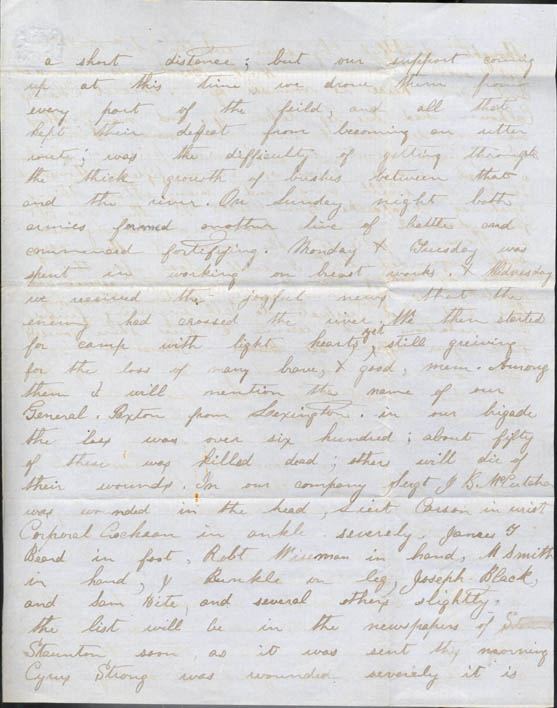 a short distance; but our support coming
up at this time we drove them from
every part of the feild, and all that
kept their defeat from becoming an utter
rout; was the difficulty of getting through
the thick growth of bushes between that
and the river. On Sunday night both
armies formed another line of battle and
commenced fortifying. Monday & Tuesday was
spent in working on breast works. & Wednesday
we received the joyful news that the
enemy had crossed the river. We then started
for camp with light hearts, yet still greiving
for the loss of many brave, & good, men. Among
them I will mention the name of our
General. Paxton from Lexington. in our brigade
the loss was over six hundred; about fifty
of these was killed dead; others will die of
their wounds. In our company Sergt J B. McCutchan
was wounded in the head, Lieut Carson in wrist
Corporal Cochran in ankle severely. James T
Beard in foot, Robt Wiseman in hand, M Smith
in hand, J Runkle in leg, Joseph Black,
and Sam Hite, and several others slightly.
the list will be in the newspapers of
Staunton soon as it was sent this morning
Cyrus Strong was wounded severely it is